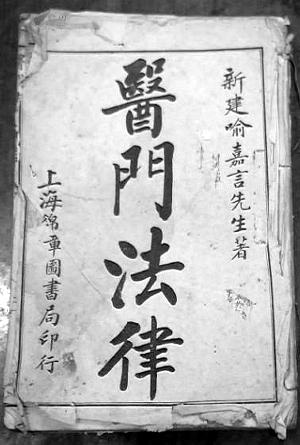 新建喻嘉言先生著
醫門法律
上海錦章圖書局印行